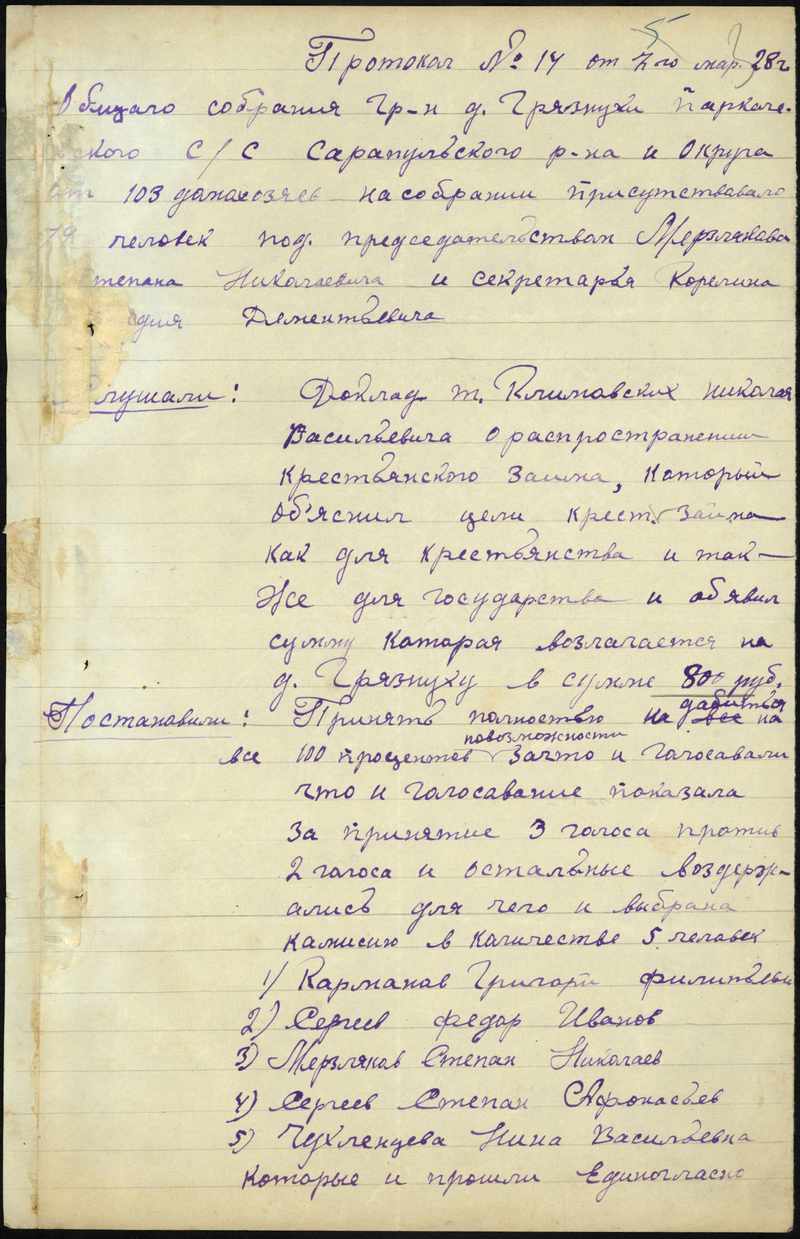 Протокол № 14 от 5 мар. 28 г
Общаго собрания гр-н д. Грязнухи Паркаче-
вского С/С Сарапульского р-на и Округа
от 103 домахозяев на собрании присутствавало
79 человек под. председательствам Мерзлякова
Степана Никалаевича и секретарья Корелина
Дементьевича
Слушали: Доклад т. Климовских Николая
Васильевича о распространении
Крестьянского Займа, который
об'яснил цели Крест. Займа
как для крестьянства и так-
же для государства и об'явил
сумму Каторая возлагается на
д. Грязнуху в сумме 800 руб.
дабиться
Постановили: Принять полностью на все на
повозможности
все 100 процентов Зачто и голосавали
что и голосавание показала
За принятие 3 голоса против
2 голоса и остальные воздерж-
ались для чего и выбрана
камисию в количестве 5 человек
1) Карманов Григори филипьеви
2) Сергеев федор Иванов
3) Мерзляков Степан Николаев
4) Сергеев Степан Афонасьев
5) Чухленцева Нина Васильевна
которые и прошли Единогласно